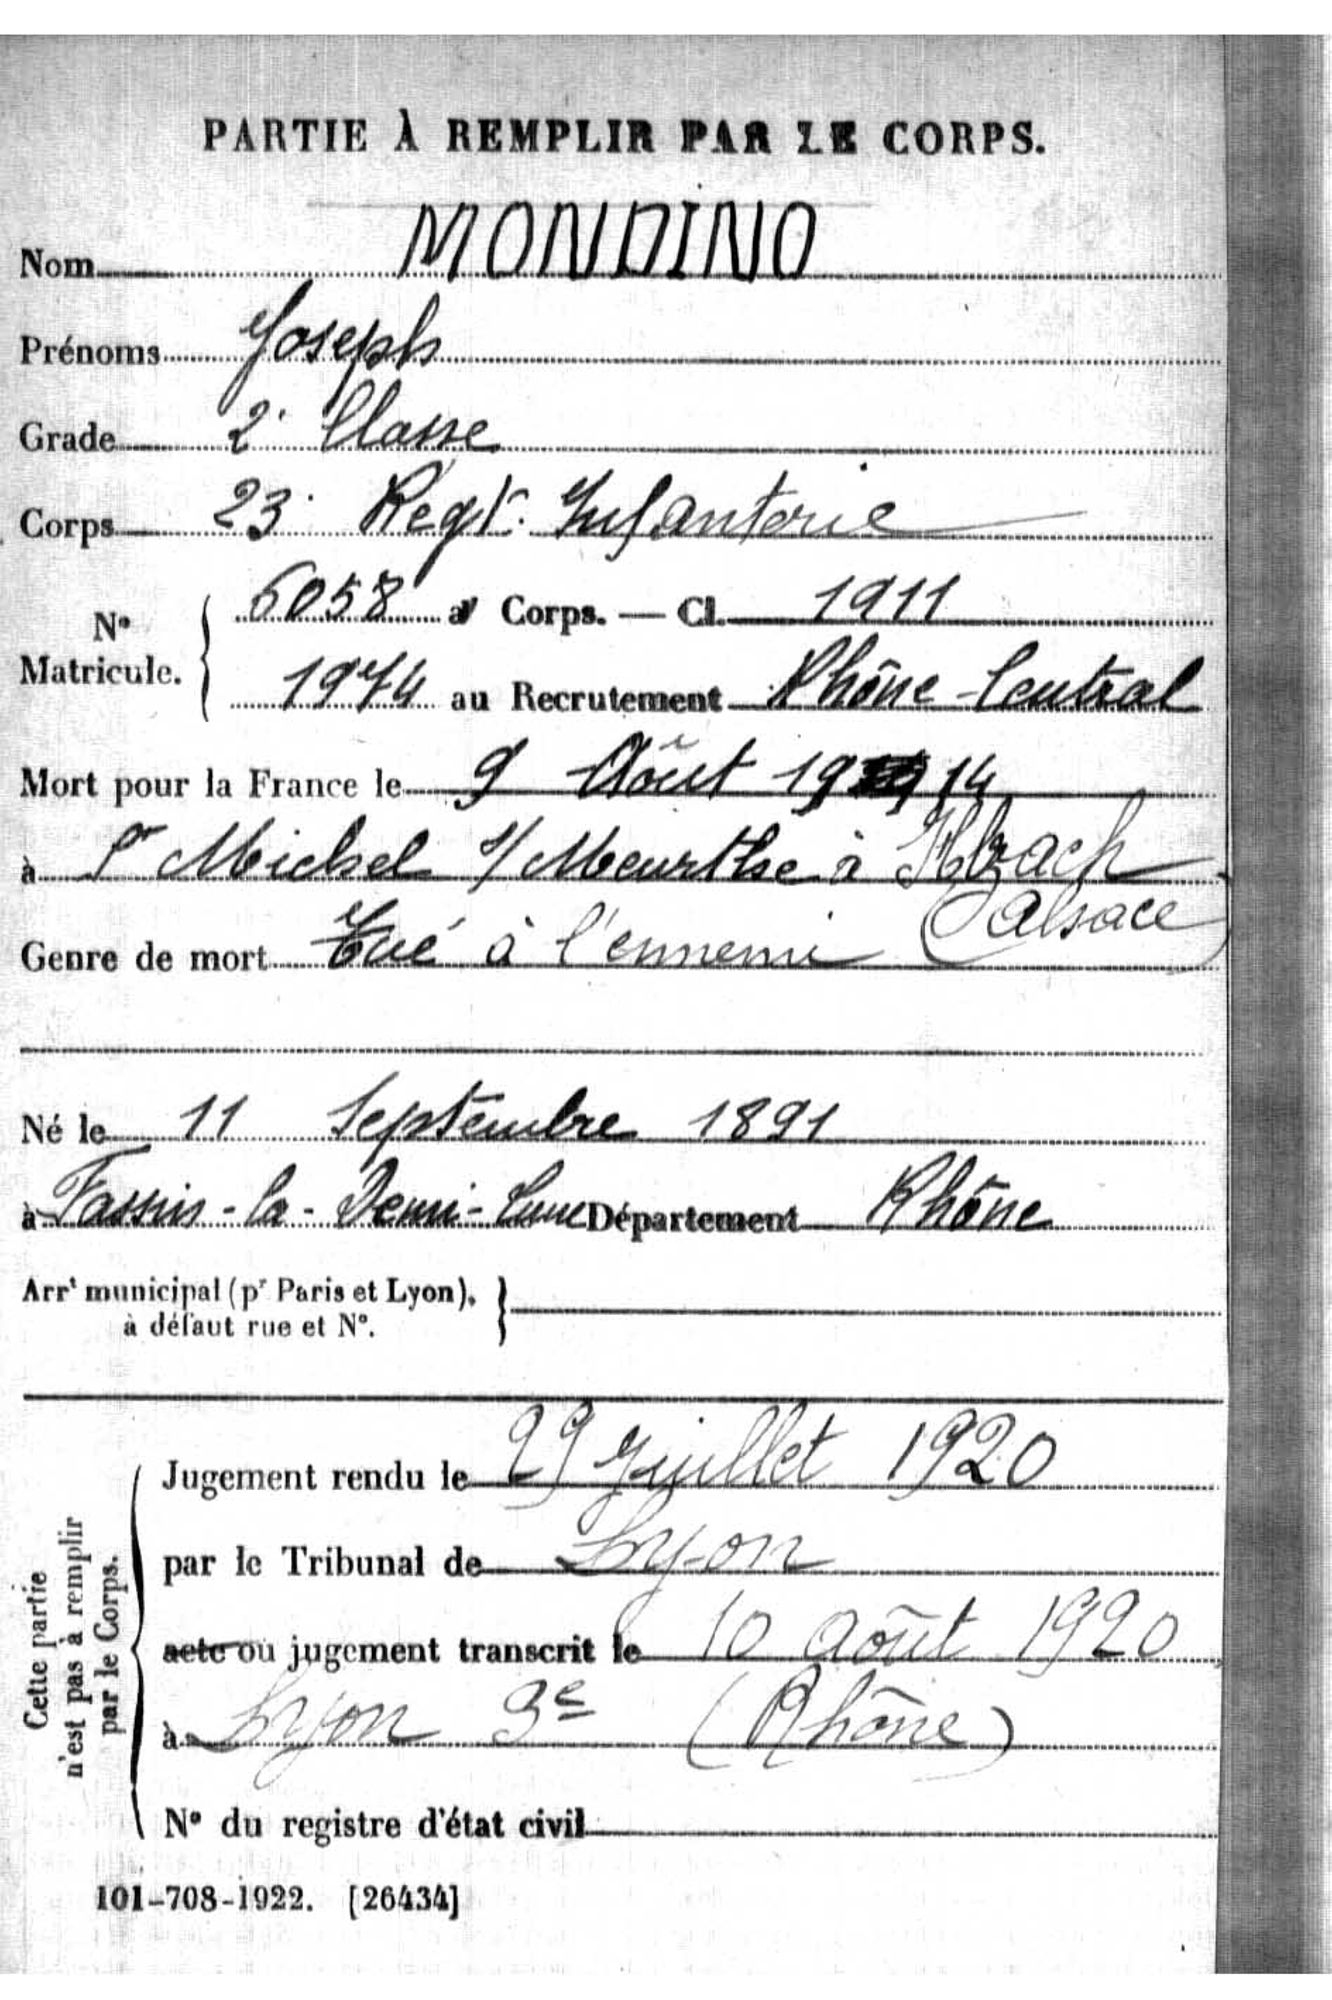 PARTIE À REMPLIR PAR LE CORPS.
Nom MONDINO
Prénoms Joseph
Grade 2e Classe
Corps 23e Regt. Infanterie
N° Matricule. 6058 au Corps. — Cl. 1911
1974 au Recrutement Rhône-Central
Mort pour la France le 9 Août 1914
à St Michel s/Meurthe à Illzach
(Alsace)
Genre de mort Tué à l'ennemi
Né le 11 Septembre 1891
à Tassin-la-Demi-Lune Département Rhône
Arrt municipal (pr Paris et Lyon),
à défaut rue et N°.
Cette partie
n'est pas à remplir
par le Corps.
Jugement rendu le 29 Juillet 1920
par le Tribunal de Lyon
acte ou jugement transcrit le 10 Août 1920
à Lyon 3e (Rhône)
N° du registre d'état civil
101-708-1922. [26434]